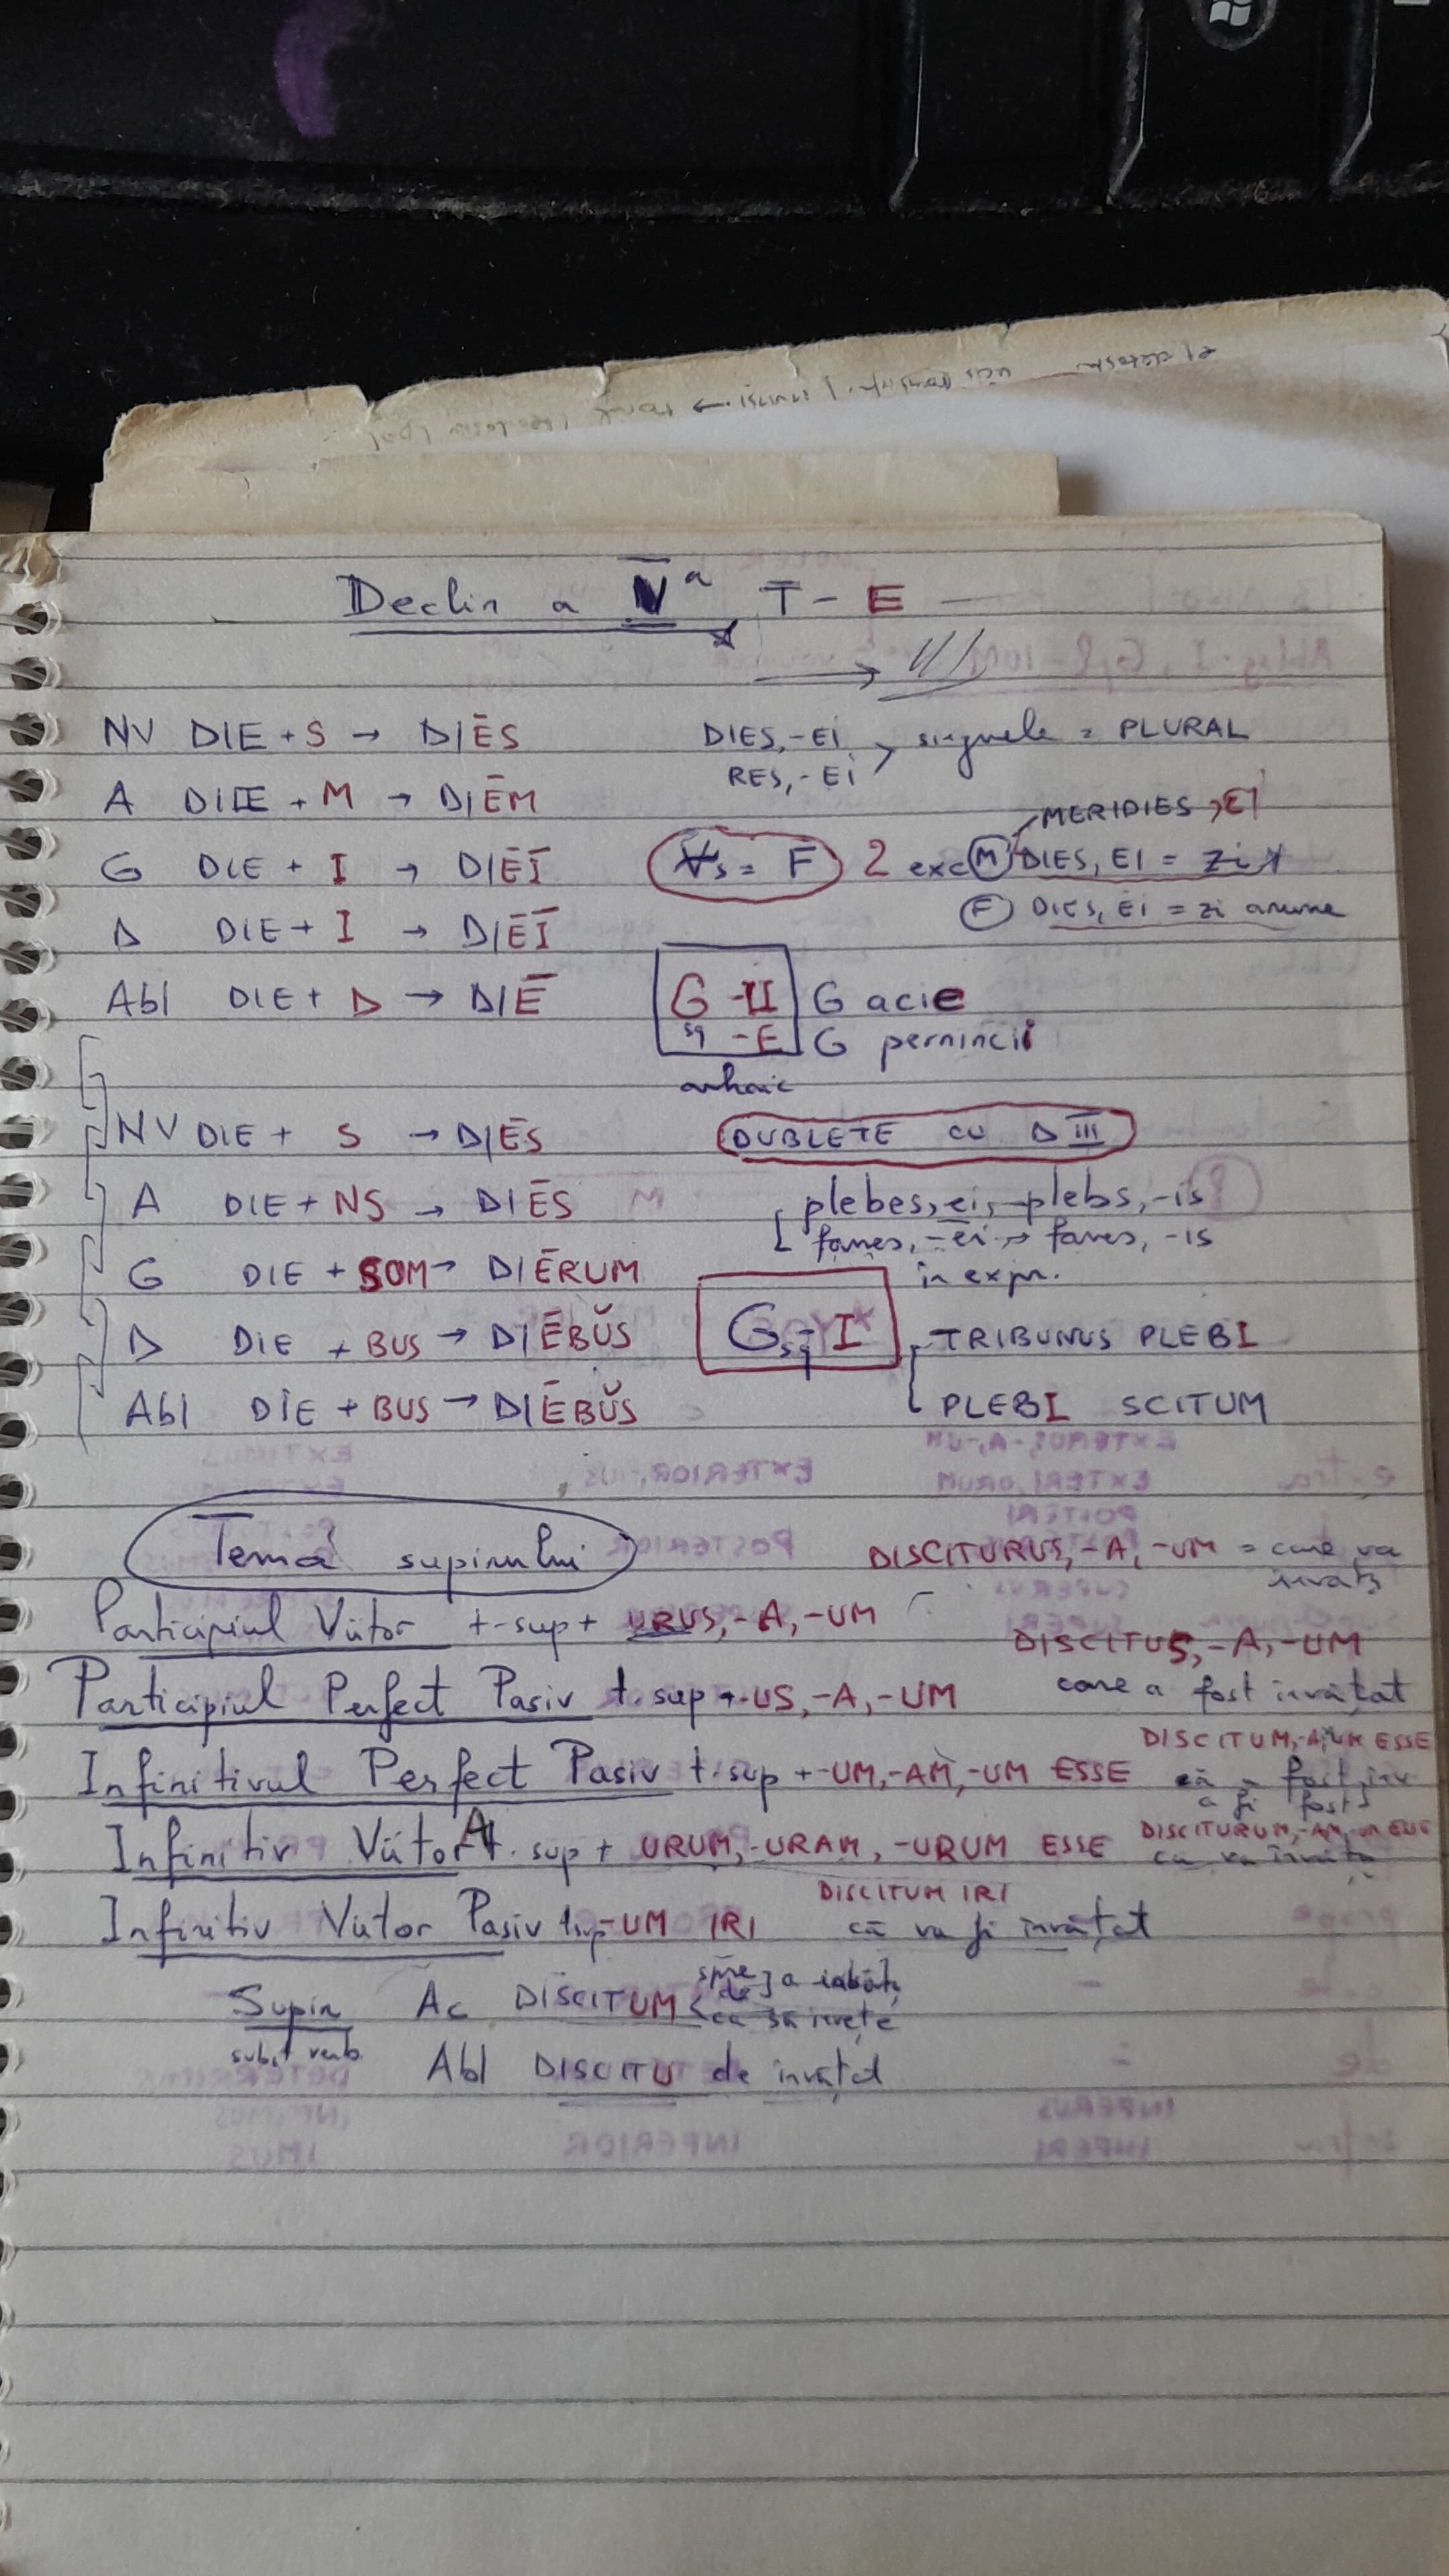 Declin a V a T - E
NV DIE + S → DIĒS DIES, -EI
RES, -EI > singurele = PLURAL
A DIE + M → DIĒM
MERIDIES, EI
G DIE + I → DIĒĪ ∀s = F 2 exc M DIES, EI = zi
D DIE + I → DIĒĪ F DIES, EI = zi anume
Abl DIE + D → DIĒ G -II G acie
sg -E G pernincii
arhaic
NV DIE + S → DIĒS DUBLETE CU D III
A DIE + NS → DIĒS plebes, ei, plebs, -is
fames, -ei → fames, -is
G DIE + SOM → DIĒRUM în expr.
D DIE + BUS → DIĒBŬS Gsg - I TRIBUNUS PLEBI
Abl DIE + BUS → DIĒBŬS PLEBI SCITUM
Temă supinului DISCITURUS, -A, -UM = care va
învăța
Participiul Viitor t-sup + URUS, -A, -UM
DISCITUS, -A, -UM
Participiul Perfect Pasiv t. sup + -US, -A, -UM care a fost învățat
DISCITUM, -A, UM ESSE
Infinitivul Perfect Pasiv t. sup + -UM, -AM, -UM ESSE că a fost înv
a fi fost
Infinitiv Viitor A t. sup + URUM, -URAM, -URUM ESSE DISCITURUM, -AM, -UM ESSE
că va învăța
DISCITUM IRI
Infinitiv Viitor Pasiv tsup -UM IRI că va fi învățat
Supin Ac DISCITUM < spre
de ] a
ca să învețe
subst verb. Abl DISCITU de învățat